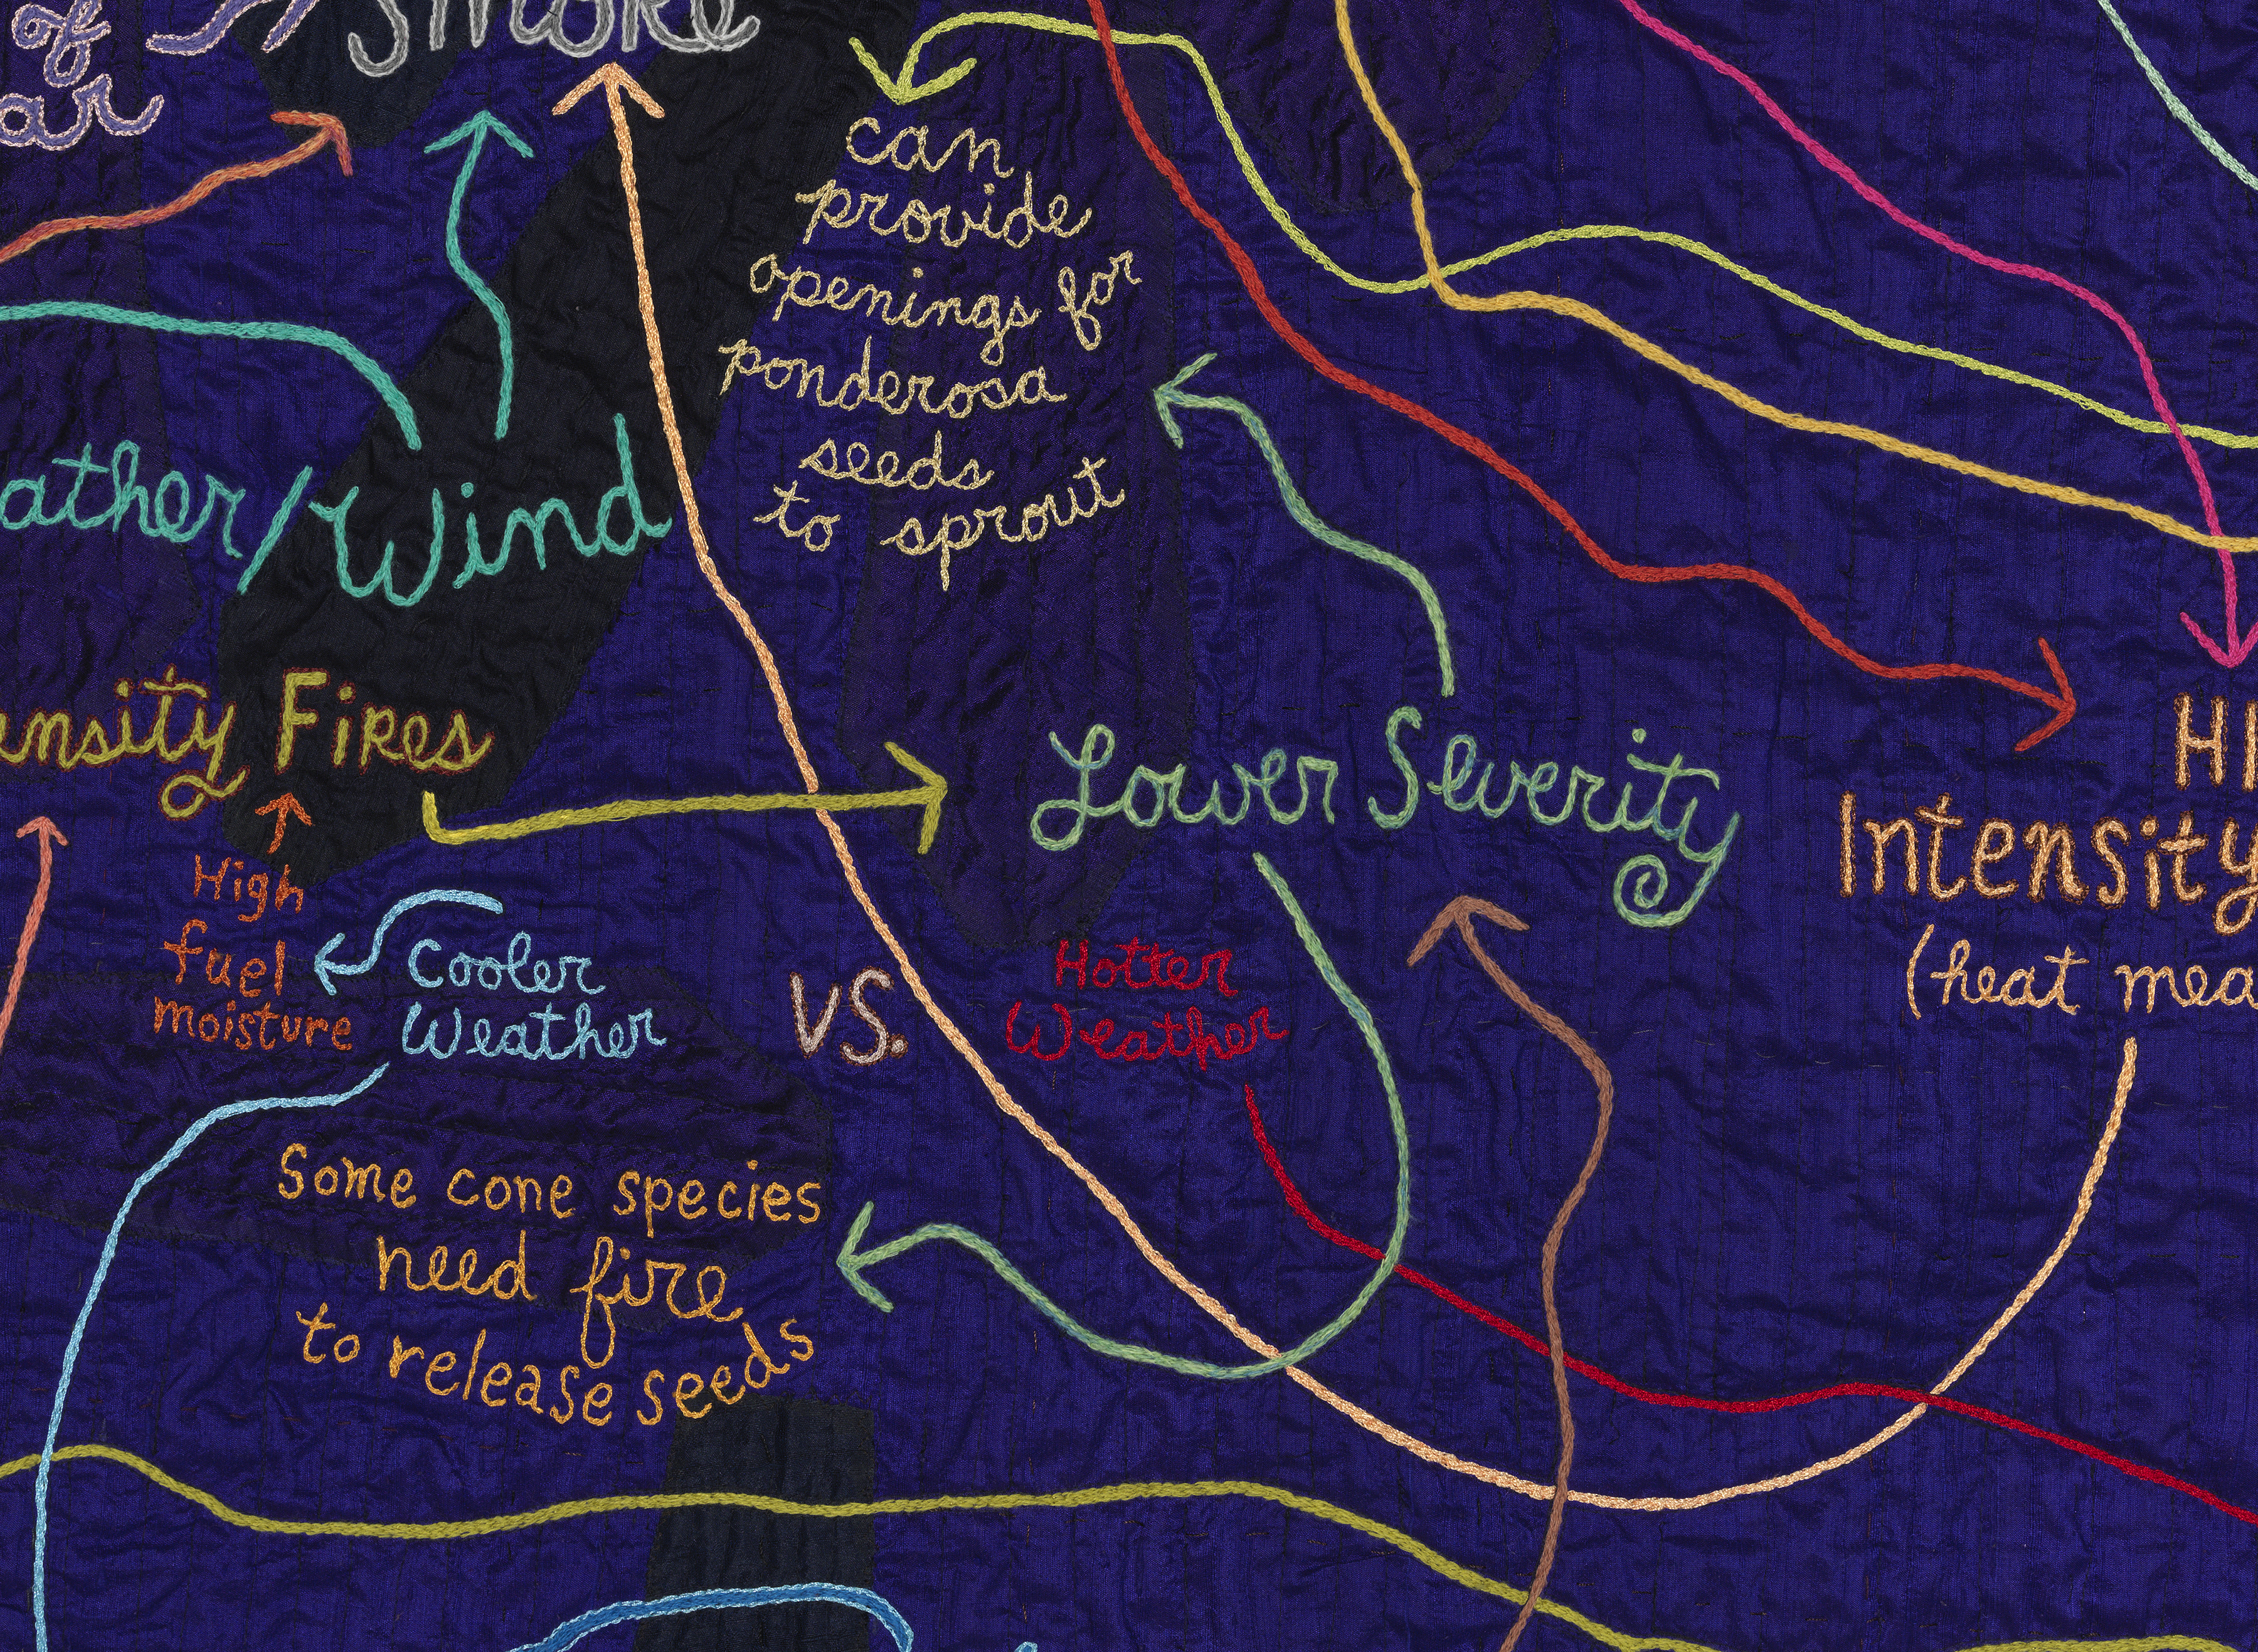 of
Smoke
can
provide
openings for
ponderosa
seeds
to sprout
Wind
Fires
Lower Severity
Intensity
(heat
High
fuel
moisture
Cooler
Weather
vs.
Hotter
Weather
Some cone species
need fire
to release seeds